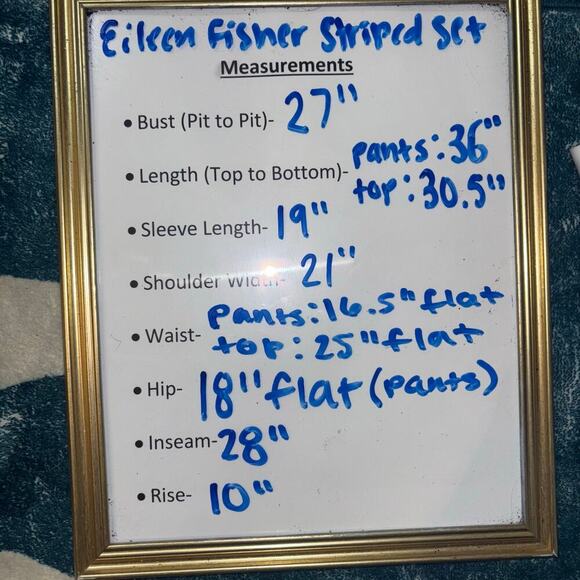 Eileen Fisher Striped Set
Measurements
• Bust (Pit to Pit)- 27"
• Length (Top to Bottom)- pants: 36"
top: 30.5"
• Sleeve Length- 19"
• Shoulder Width- 21"
• Waist- pants: 16.5" flat
top: 25" flat
• Hip- 18" flat (pants)
• Inseam- 28"
• Rise- 10"